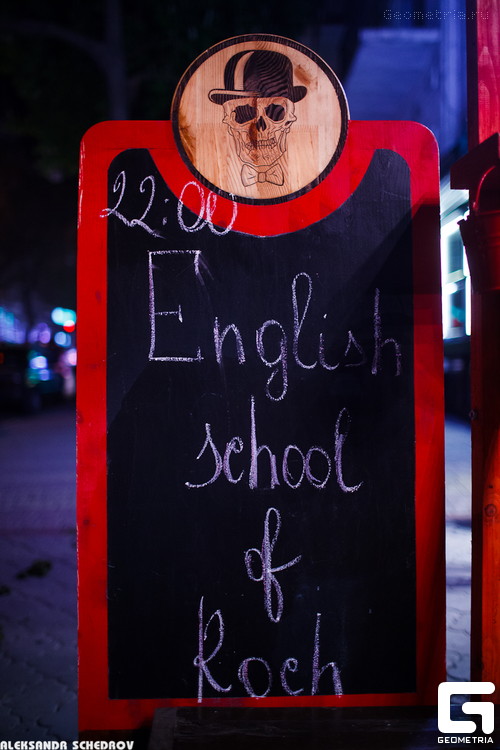 Geometria.ru
22:00
English
school
of
Roch
ALEKSANDR SCHEDROV
GEOMETRIA